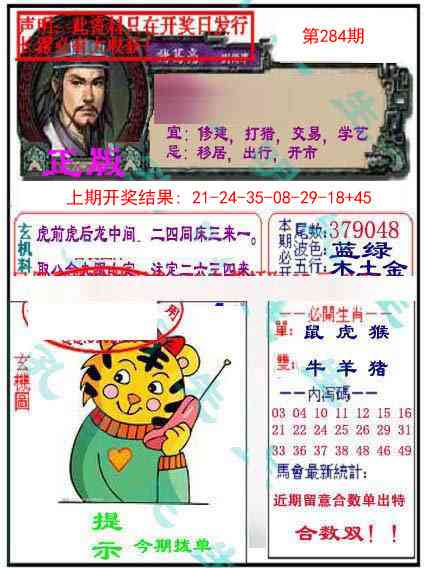 声明:此资料只在开奖日发行
第284期
正版
宜: 修建, 打猎, 交易, 学艺
忌: 移居, 出行, 开市
上期开奖结果: 21-24-35-08-29-18+45
玄机料
虎前虎后龙中间
二四同床三来一。
本期必开
尾数: 379048
波色: 蓝绿
五行: 木土金
必開生肖
單: 鼠 虎 猴
雙: 牛 羊 猪
内泻碼
03 04 10 11 12 15 16
21 22 24 25 26 29 31
33 36 37 38 46 48 49
馬會最新統計:
近期留意合数单出特
合数双!!
玄機圖
提示
今期拨单